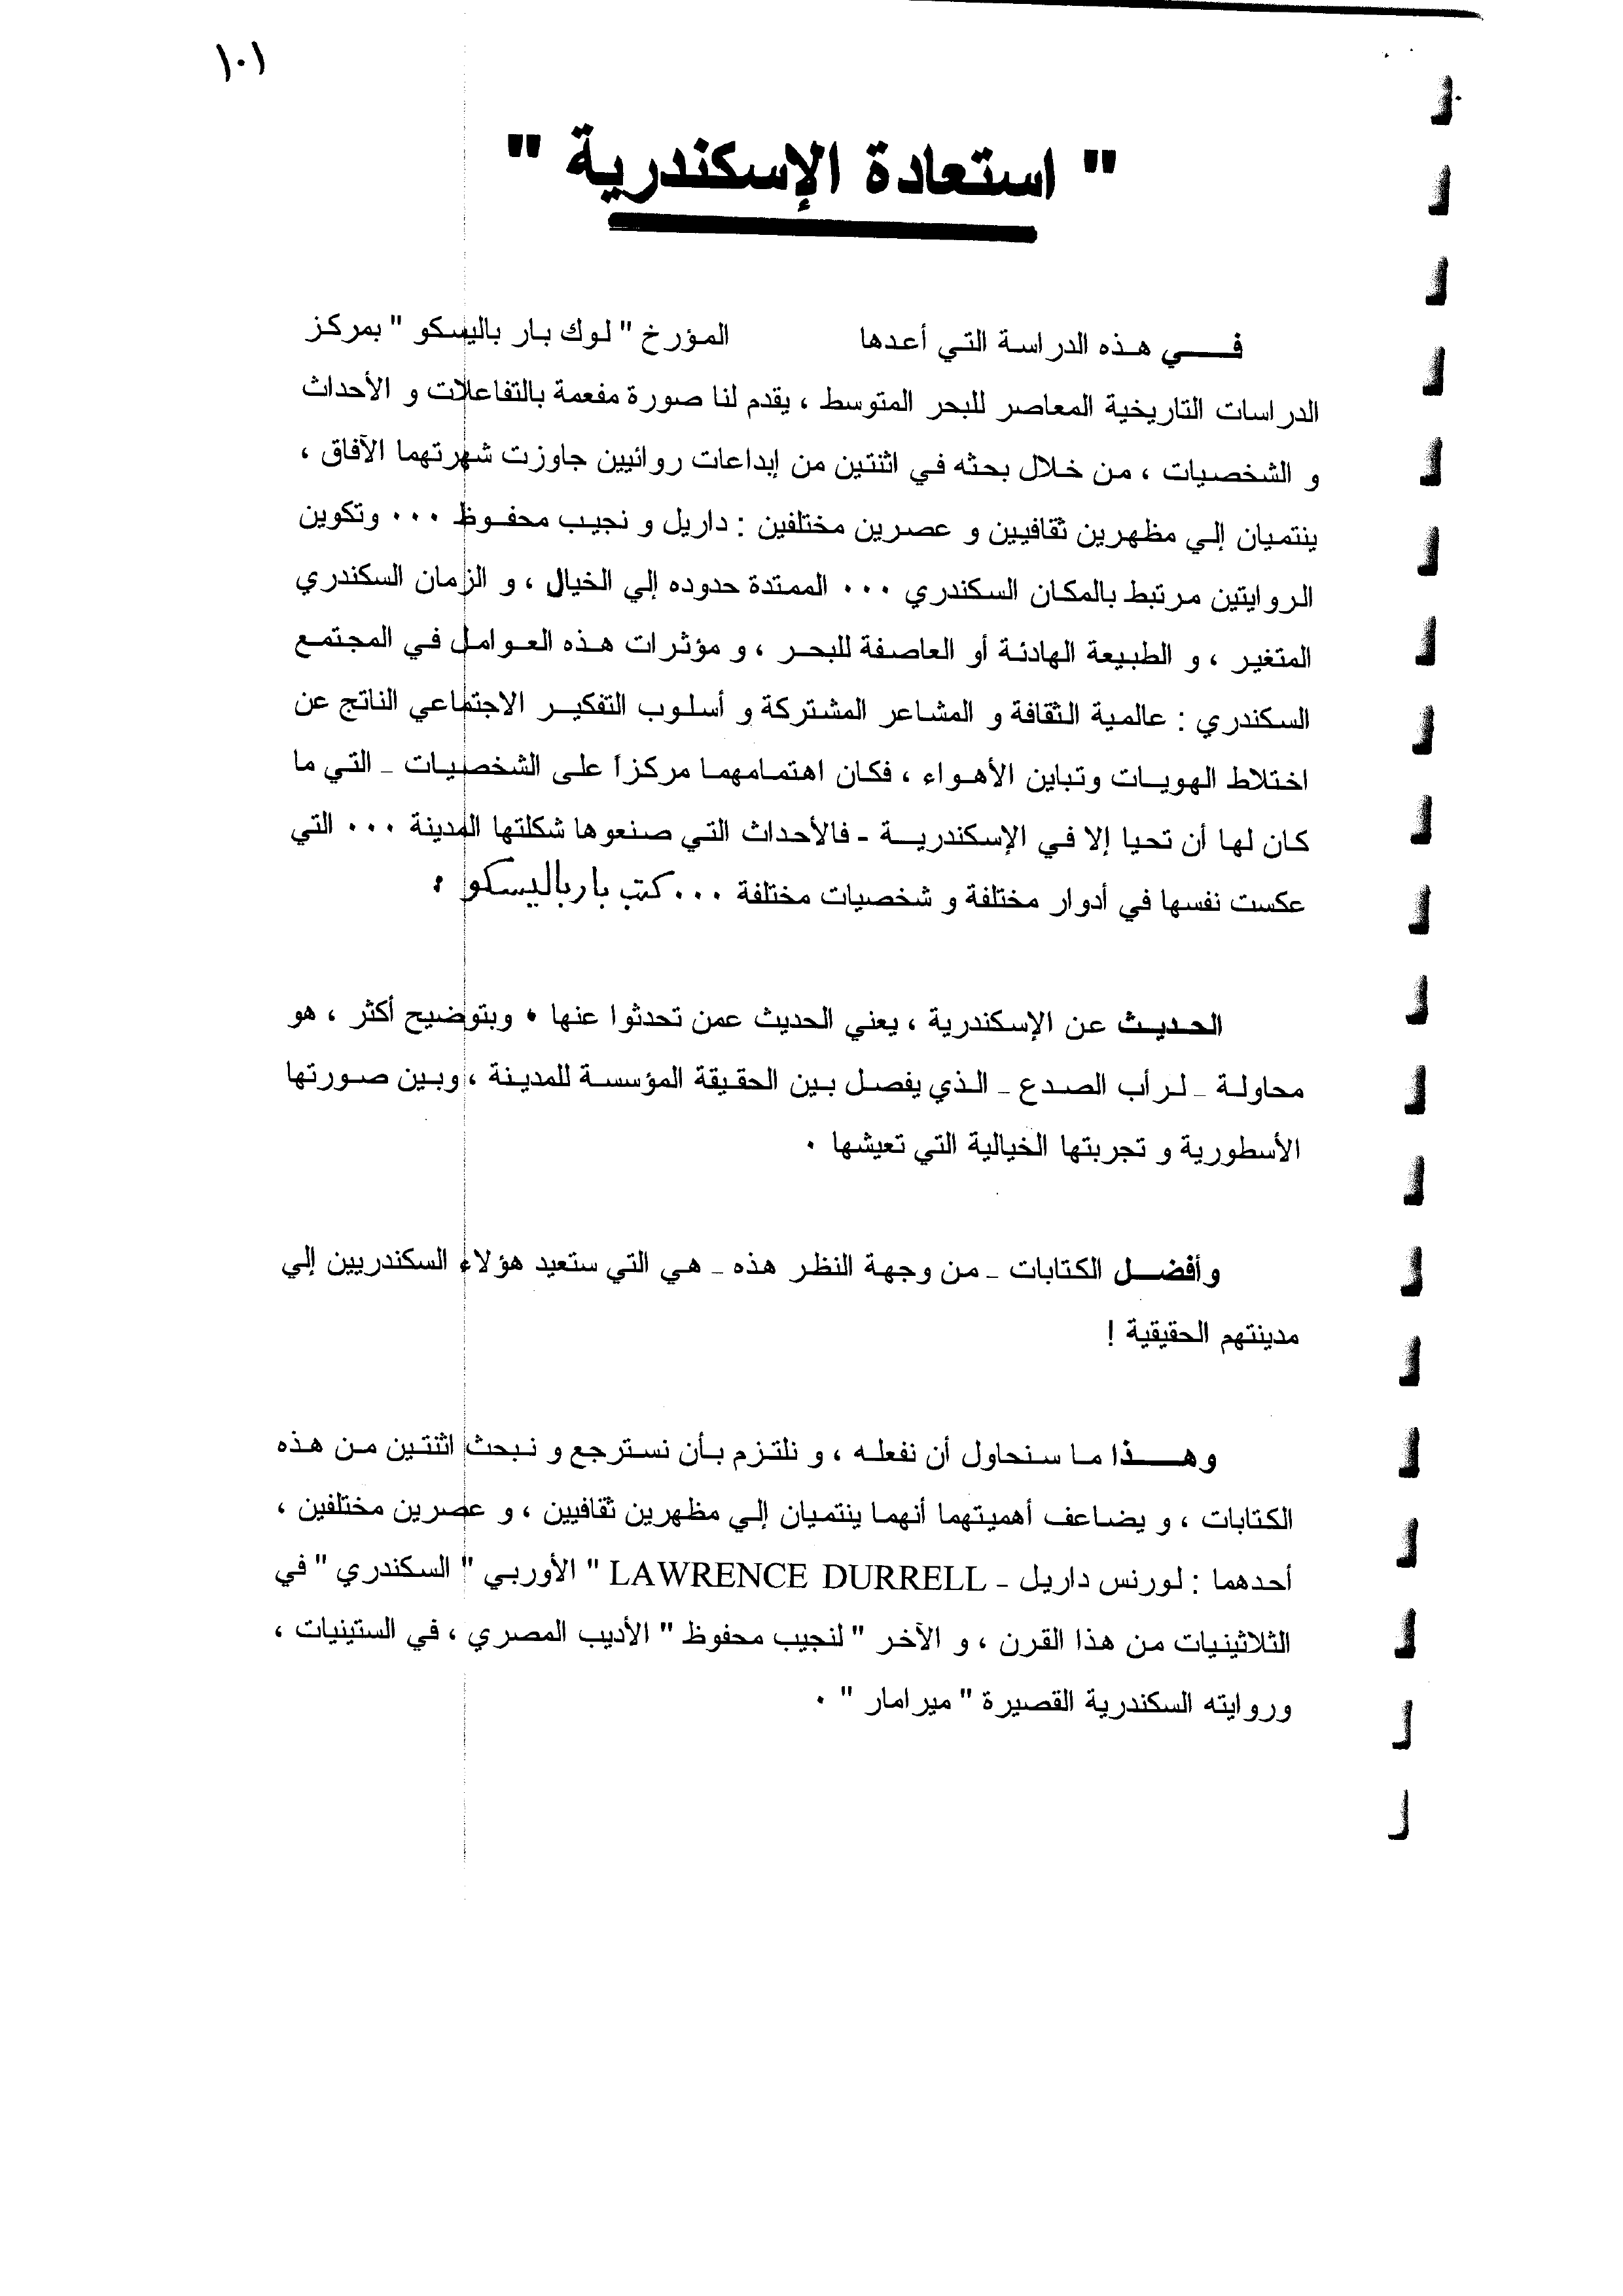 ١٠١
" استعادة الإسكندرية "
في هذه الدراسة التي أعدها المؤرخ " لوك بار باليسكو " بمركز
الدراسات التاريخية المعاصر للبحر المتوسط ، يقدم لنا صورة مفعمة بالتفاعلات و الأحداث
و الشخصيات ، من خلال بحثه في اثنتين من إبداعات روائيين جاوزت شهرتهما الآفاق ،
ينتميان إلي مظهرين ثقافيين و عصرين مختلفين : داريل و نجيب محفوظ ٠٠٠ وتكوين
الروايتين مرتبط بالمكان السكندري ٠٠٠ الممتدة حدوده إلي الخيال ، و الزمان السكندري
المتغير ، و الطبيعة الهادئة أو العاصفة للبحر ، و مؤثرات هذه العوامل في المجتمع
السكندري : عالمية الثقافة و المشاعر المشتركة و أسلوب التفكير الاجتماعي الناتج عن
اختلاط الهويات وتباين الأهواء ، فكان اهتمامهما مركزاً على الشخصيات - التي ما
كان لها أن تحيا إلا في الإسكندرية - فالأحداث التي صنعوها شكلتها المدينة ٠٠٠ التي
عكست نفسها في أدوار مختلفة و شخصيات مختلفة ٠٠٠ كتب بار باليسكو :
الحديث عن الإسكندرية ، يعني الحديث عمن تحدثوا عنها ٠ وبتوضيح أكثر ، هو
محاولة - لرأب الصدع - الذي يفصل بين الحقيقة المؤسسة للمدينة ، وبين صورتها
الأسطورية و تجربتها الخيالية التي تعيشها ٠
وأفضل الكتابات - من وجهة النظر هذه - هي التي ستعيد هؤلاء السكندريين إلي
مدينتهم الحقيقية !
وهذا ما سنحاول أن نفعله ، و نلتزم بأن نسترجع و نبحث اثنتين من هذه
الكتابات ، و يضاعف أهميتهما أنهما ينتميان إلي مظهرين ثقافيين ، و عصرين مختلفين ،
أحدهما : لورنس داريل - LAWRENCE DURRELL " الأوربي " السكندري " في
الثلاثينيات من هذا القرن ، و الآخر " لنجيب محفوظ " الأديب المصري ، في الستينيات ،
وروايته السكندرية القصيرة " ميرامار " ٠